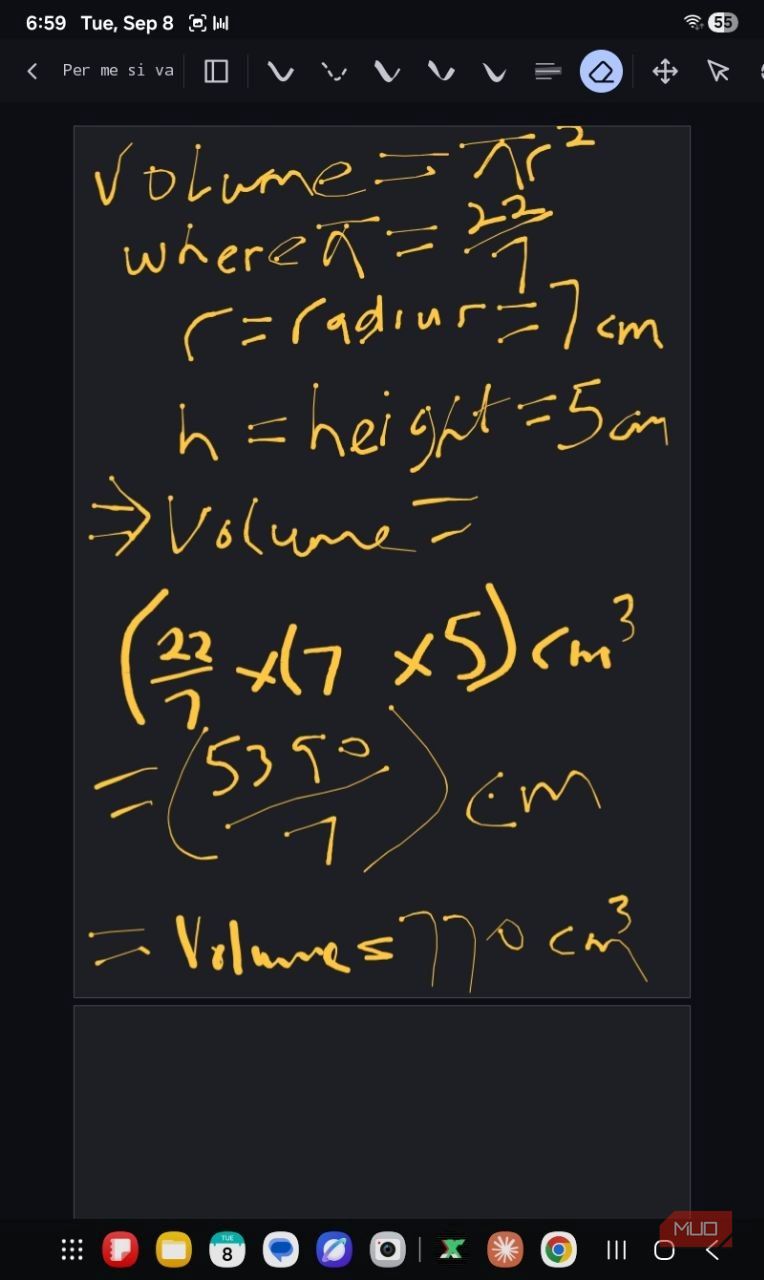 6:59 Tue, Sep 8
55
Per me si va
Volume = πr²
where π = 22/7
r = radius = 7 cm
h = height = 5 cm
⇒ Volume =
(22/7 × (7 × 5) cm³
= (5390/7) cm
= Volume = 770 cm³
TUE
8
MUO